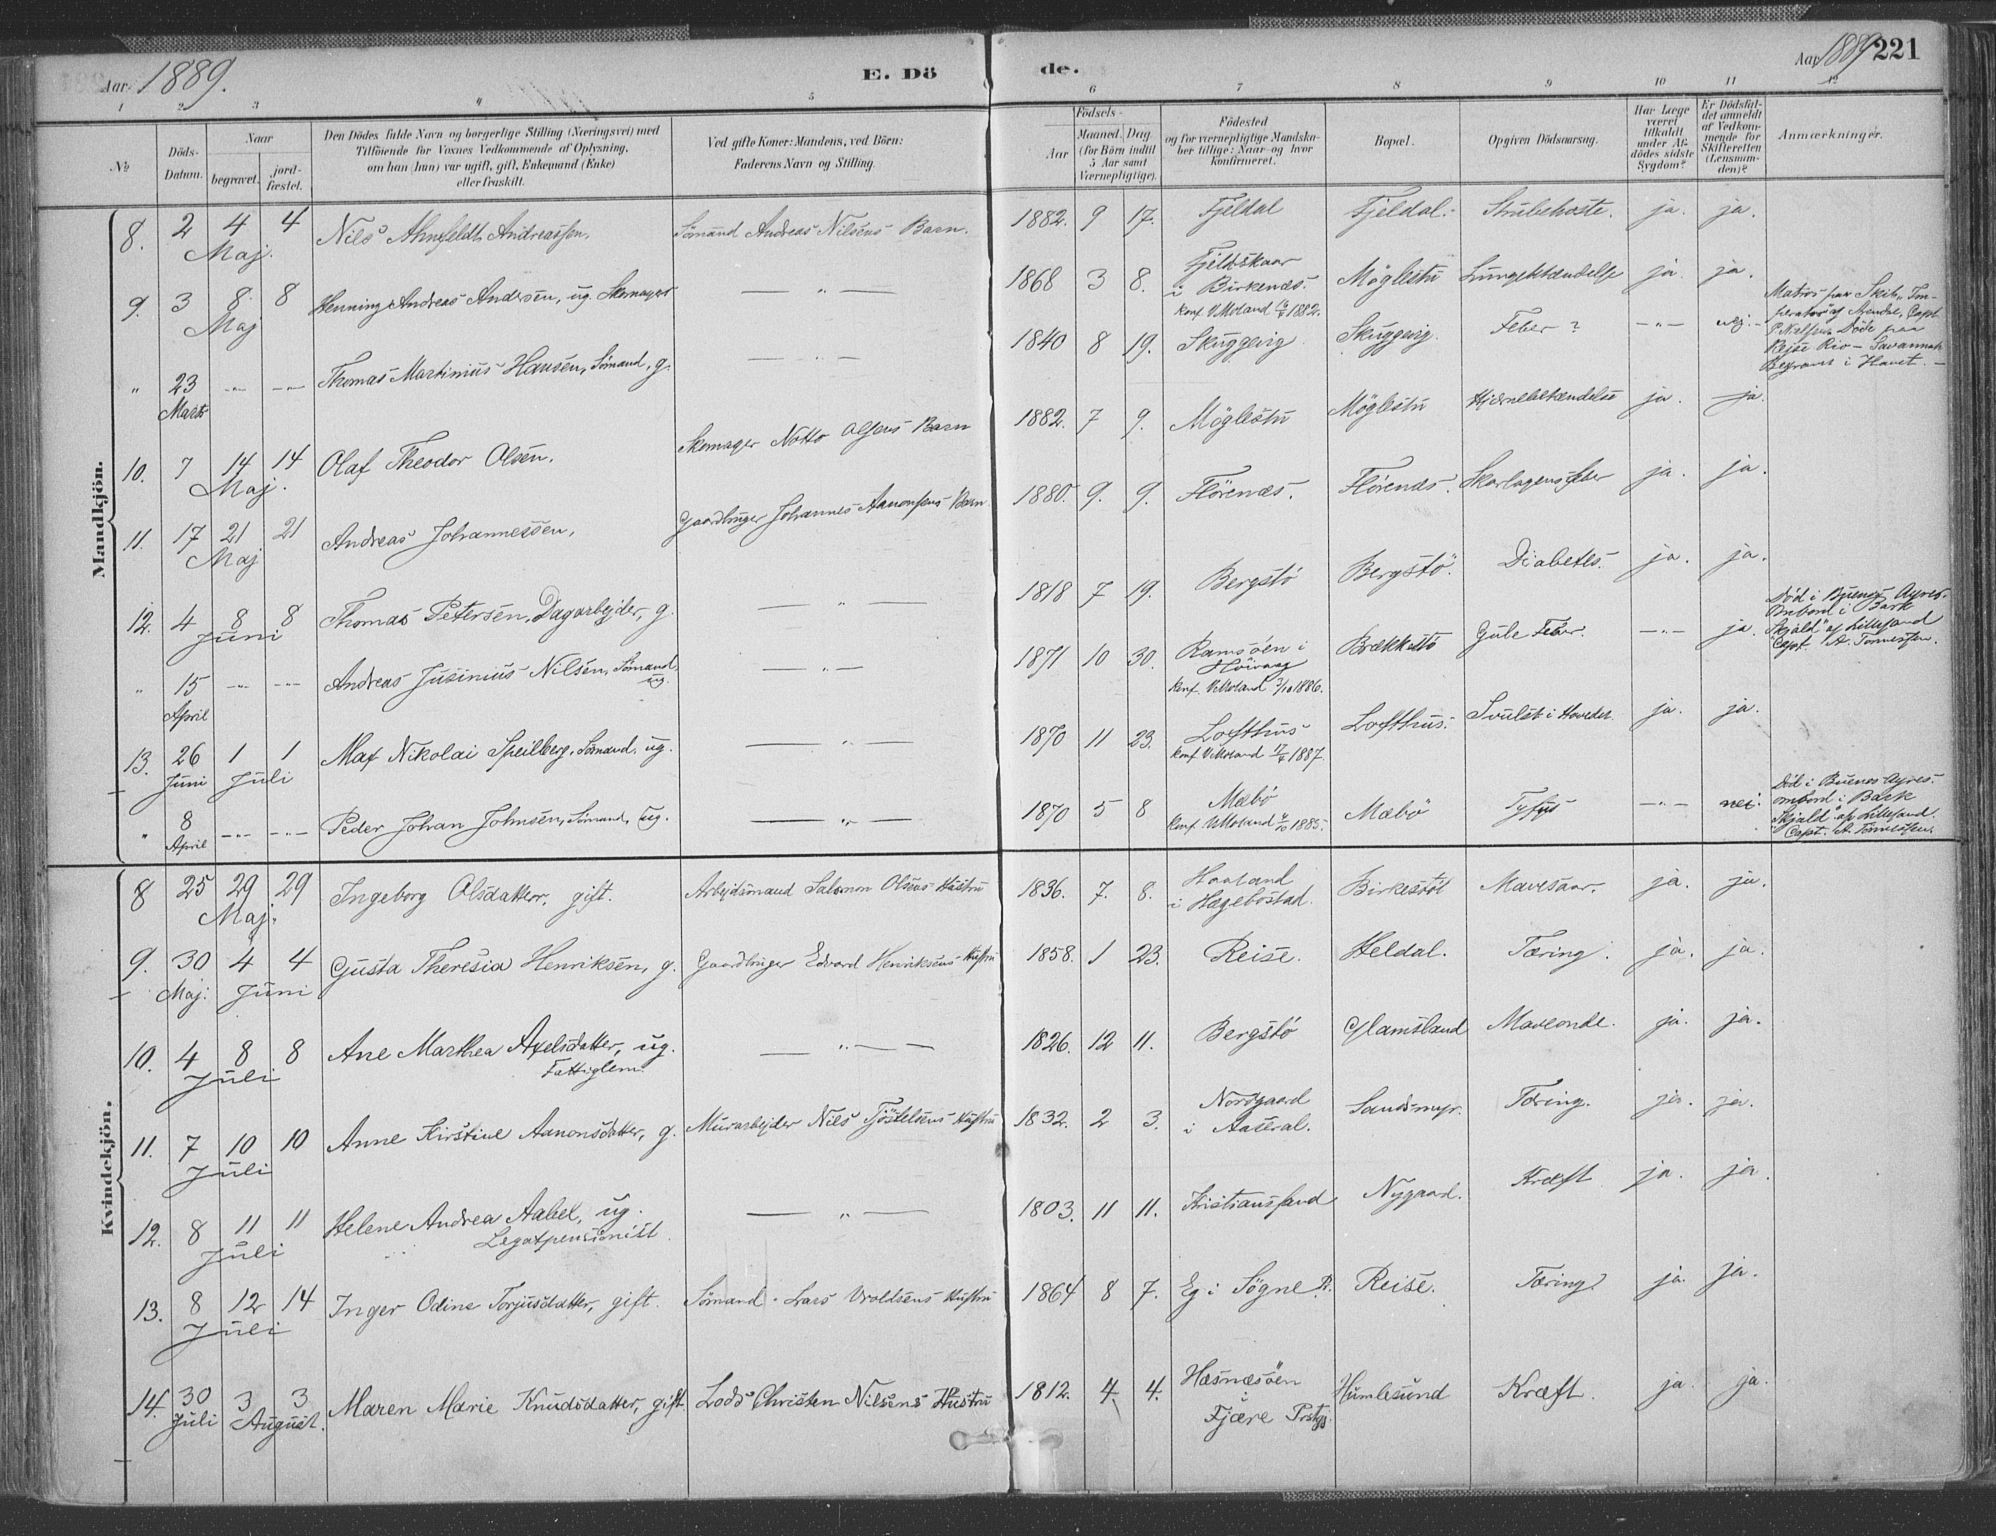 Aar 1889.
E. Dö de.
Aar 1889 221
1 2 3 4 5 6 7 8 9 10 11 12
No
Döds-Datum.
Naar
begravet.
jord-fæstet.
Den Dödes fulde Navn og borgerlige Stilling (Næringsvei) med Tilföiende for Voxnes Vedkommende af Oplysning, om han (hun) var ugift, gift, Enkemand (Enke) eller fraskilt.
Ved gifte Koner: Mandens, ved Börn: Faderens Navn og Stilling.
Födsels-
Aar
Maaned. Dag.
(for Börn indtil 5 Aar samt Værnepligtige).
Födested og for værnepligtige Mandskaber tillige: Naar og hvor konfirmeret.
Bopæl.
Opgiven Dödsaarsag.
Har Læge været tilkaldt under Afdödes sidste Sygdom?
Er Dödsfaldet anmeldt af Vedkommende for Skifteretten (Lensmanden)?
Anmærkninger.
Mandkjön.
8. 2 4 4 Maj. Nils Ahnfeldt Andreassen. Sömand Andreas Nilsens Barn. 1882. 9 17. Fjeldal Fjeldal. Strubehoste. ja. ja.
9. 3 8 8 Maj Henning Andreas Andersen, ug. Skomager — " — 1868 3 8. Fjeldskaar i Birkenes. konf. V. Moland 1882. Möglestu Lungebetændelse ja. ja.
" 23 Marts —"— —"— Thomas Martinius Hansen, Sömand, g. — " — 1840 8 19. Skuggevig Skuggevig. Feber ? —"— nej. Matros paa Skib "Imperator" af Arendal, Capt. Döde paa Rejse Rio – Savannah Begravet i Havet. –
10. 7 14 14 Maj. Olaf Theodor Olsen. Skomager Notto Olsens Barn 1882. 7 9. Möglestu Möglestu Hjernebetændelse ja. ja.
11. 17 21 21 Maj Andreas Johannessen, Gaardbruger Johannes Aanonsens Barn 1880. 9. 9. Flörenæs. Flörenæs. Skarlagensfeber ja. ja.
12. 4 8 8 Juni Thomas Petersen, Dagarbejder, g. — " — 1818 7 19. Bergstö Bergstö. Diabetes. ja. ja.
" 15 April —"— —"— Andreas Jusinius Nilsen, Sömand, ug. — " — 1871 10 30. Ramsöen i Höivaag konf. V. Moland 3/10 1886. Brækkestö Gule Feber. —"— ja. Död i Buenos Ayres. Ombord i Bark "Skjald" af Lillesand Capt. A. Tönnessen.
13. 26 Juni 1 1 Juli Max Nikolai Speilberg, Sömand, ug. — " — 1870 11 23. Lofthus konf. V. Moland 1887. Lofthus. Svulst i Hovedet. ja. ja.
" 8 April —"— —"— Peder Johan Johnsen, Sömand, ug. — " — 1870 5 8 Mæbö konf. V. Moland 4/10 1885. Mæbö Tyfus —"— nei. Död i Buenos Ayres. ombord i Bark "Skjald" af Lillesand. Capt. A. Tönnessen.
Kvindekjön.
8 25 29 29 Maj. Ingeborg Olsdatter, gift. Arbejdsmand Salomon Olsens Hustru 1836. 7. 8. Haaland i Hægebostad. Birkestöl Mavesaar. ja. ja.
9. 30 Maj. 4 4 Juni Gusta Theresia Henriksen, g. Gaardbruger Edvard Henriksens Hustru 1858. 1 23. Reise. Heldal. Tæring. ja. ja.
10. 4 8 8 Juli Ane Marthea Axelsdatter, ug. Fattiglem. — " — 1826. 12 11. Bergstö Glamsland Maveonde. ja. ja.
11. 7 10 10 Juli Anne Kirstine Aanonsdatter, g. Murarbejder Nils Tjöstelsens Hustru 1832. 2 3. Nordgaard i Aaseral. Sandsmyr. Tæring. ja. ja.
12. 8 11 11 Juli Helene Andrea Aabel, ug. Legatpensionist. — " — 1803. 11 11. Kristianssand Nygaard. Kræft ja. ja
13. 8 12 14 Juli Inger Odine Torjusdatter, gift. Sömand Lars Woldsens Hustru 1864 8 7. Eg i Sögne P. Reise. Tæring ja. ja.
14. 30 Juli 3 3 August. Maren Marie Knudsdatter, gift. Lods Christen Nilsens Hustru 1812. 4. 4. Hæsnæsöen i Fjære Prstgj. Humlesund Kræft. ja. ja.